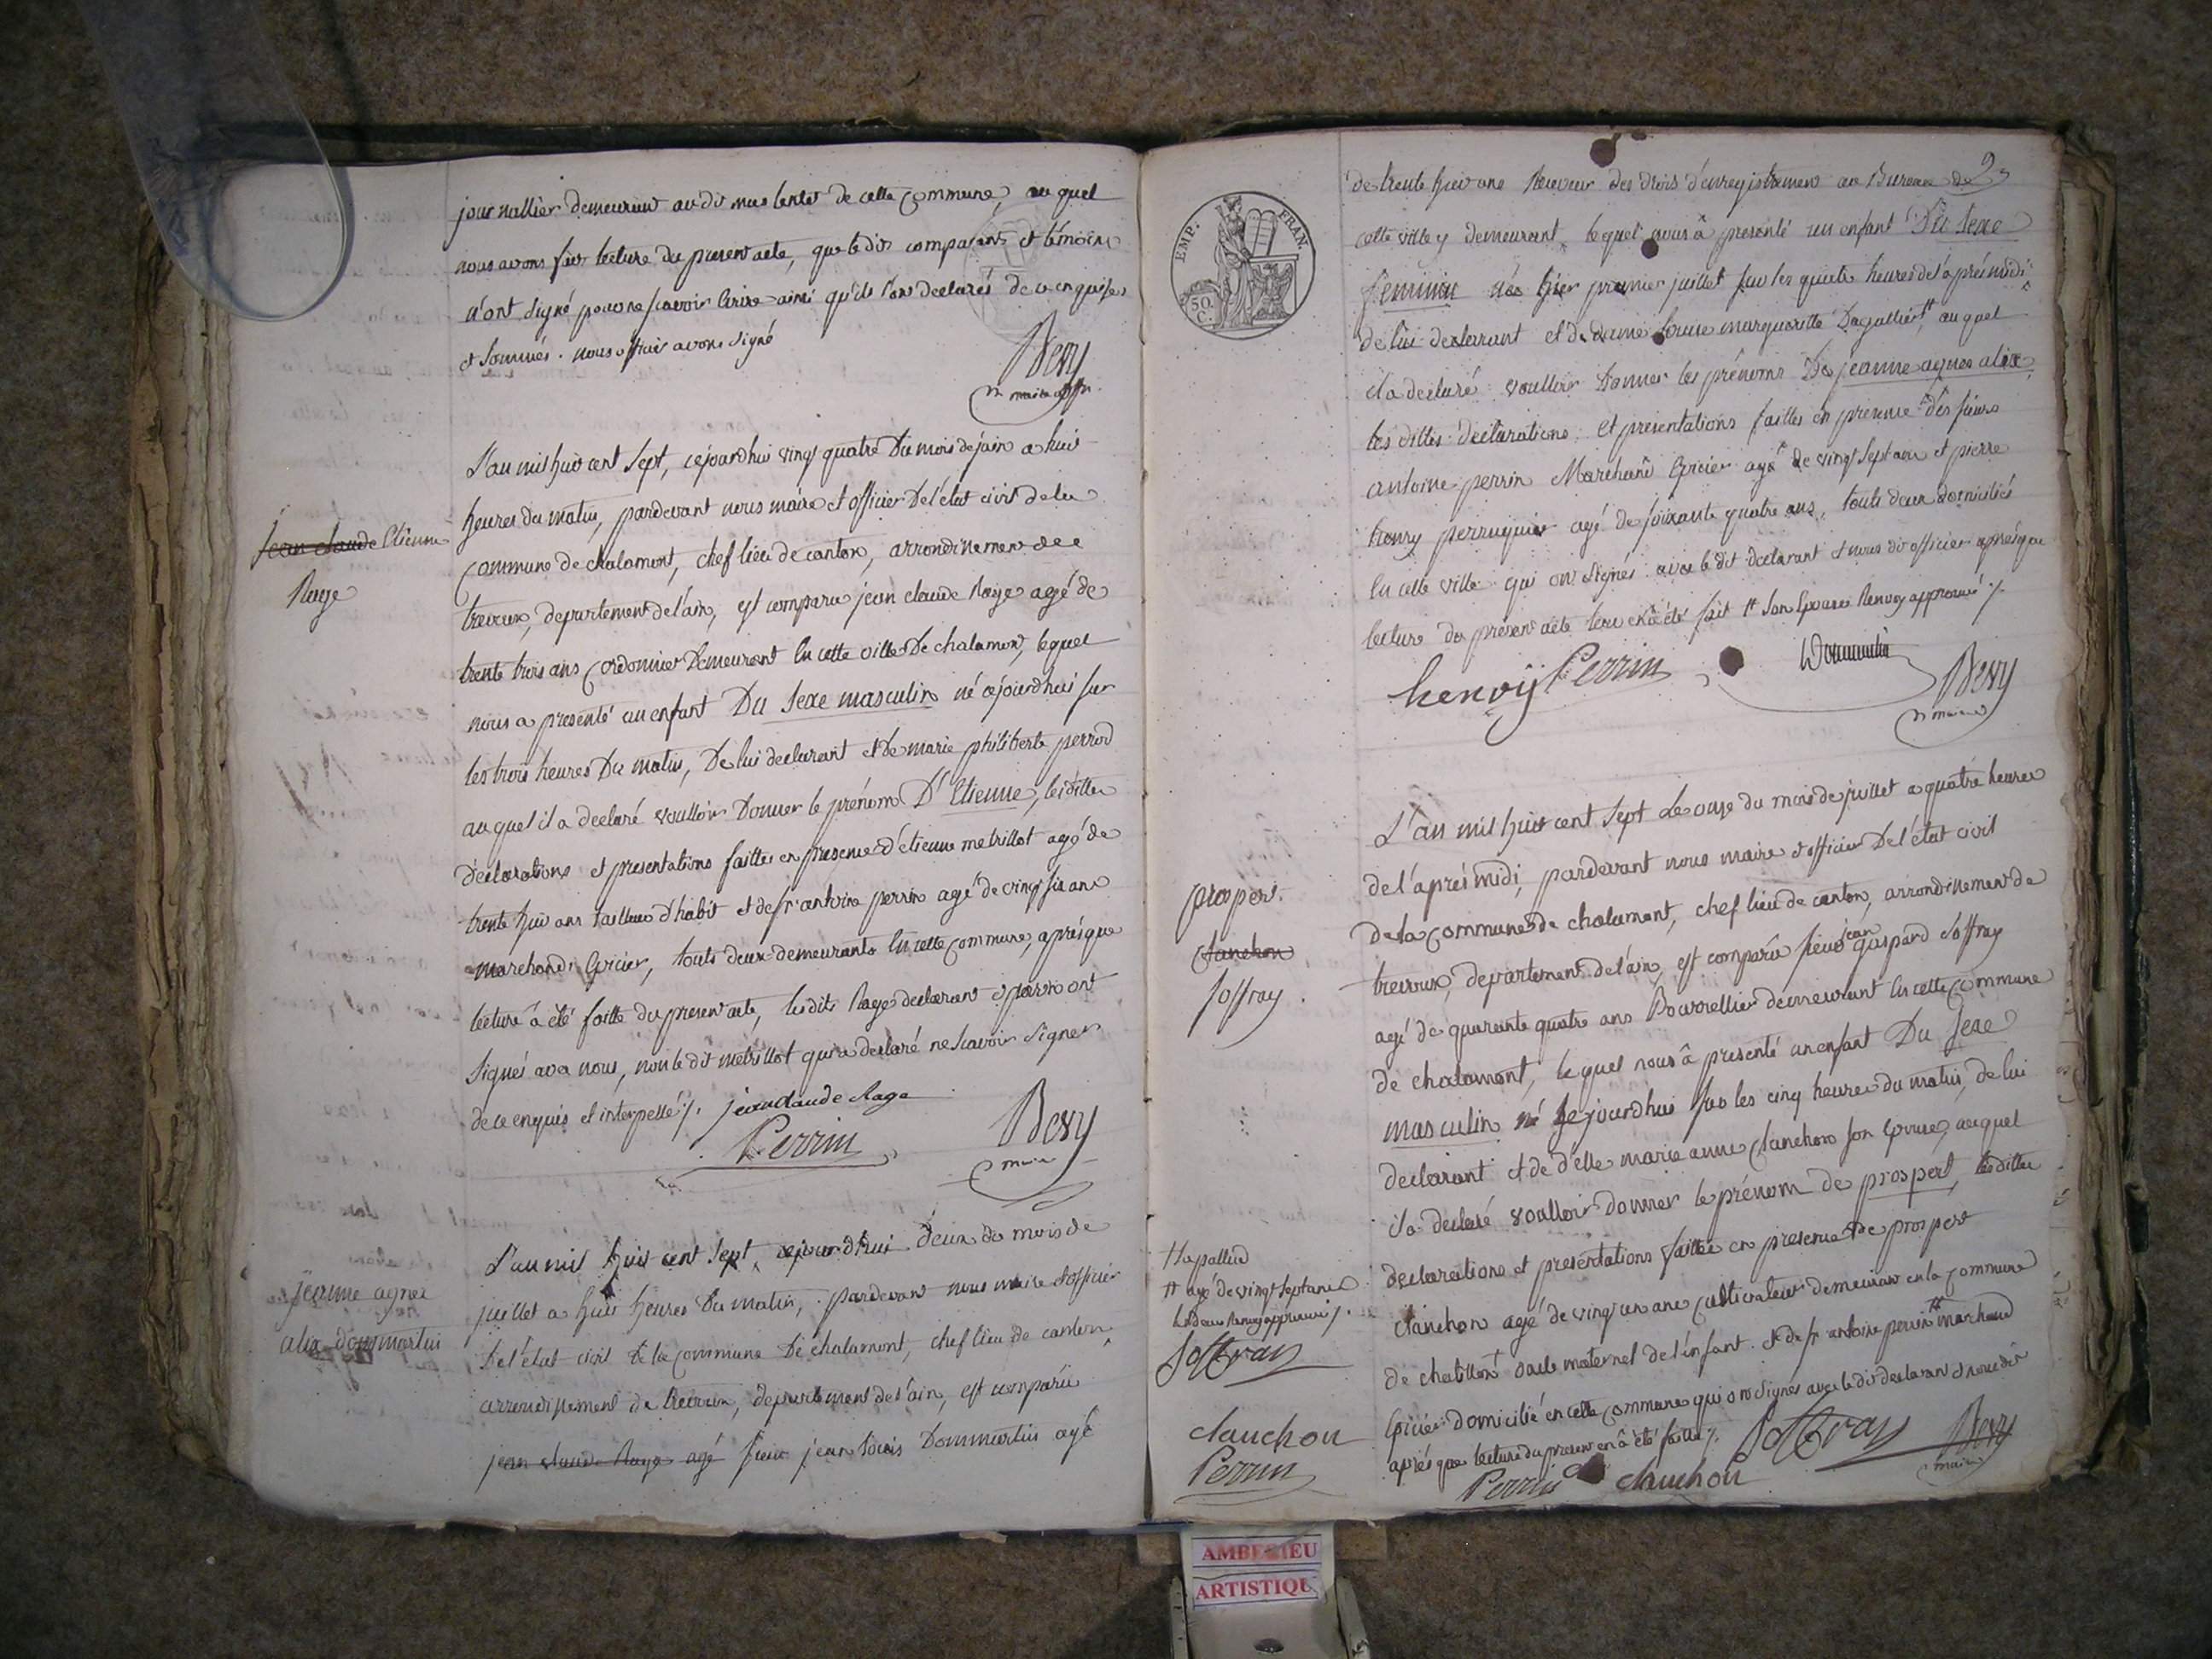 journallier demeurant au dit mas lentet de cette commune, au quel
nous avons fait lecture du present acte, que le dit comparant et témoins
n'ont signé pour ne scavoir écrire ainsi qu'ils l'ont declarés de ce enquises
et sommés. nous officier avons signé
Bevy
maire
L'an mil huit cent sept, cejourdhui vingt quatre Du mois de juin a huit
heures du matin, pardevant nous maire et officier De l'état civil de la
commune de chalamont, chef lieu de canton, arrondissement de
trevoux, departement de l'ain, est comparu jean claude Rage agé de
trente trois ans cordonnier Demeurant En cette ville De chalamont, lequel
nous a presenté un enfant Du sexe masculin né cejourdhui sur
les trois heures Du matin, De lui declarant et de marie philiberte perrod
au quel il a declaré voulloir Donner le prénom D'Etienne, lesdittes
déclarations et presentations faittes en presence d'étienne metrillot agé de
trente huit ans tailleur d'habit et de sr antoine perrin agé de vingt six ans
marchand Epicier, touts deux demeurants En cette commune, aprés que
lecture a été faitte du present acte, lesdits Rage declarant et perrin ont
signés avec nous, non le dit metrillot qui a declaré ne scavoir signer
de ce enquis et interpellé /. jean claude Rage
Perrin
Bevy
maire
Jean claude Etienne
Rage
L'an mil huit cent sept, cejourd'hui deux du mois de
juillet a huit heures Du matin, pardevant nous maire et officier
De l'état civil de la commune De chalamont, chef lieu de canton,
arrondissement de trevoux, departement de l'ain, est comparu
jean claude Rage agé sieur jean louis Dommartin agé
jeanne agnes
alix dommartin
EMP. FRAN.
50 C.
9
de trente huit ans Receveur des droits d'enregistrement au Bureau de
cette ville y demeurant, lequel nous â presenté un enfant Du sexe
feminin née hier premier juillet sur les quatre heures de l'aprés midi
de lui declarant et de dame margueritte Dagallier ++ au quel
il a declaré voulloir Donner les prénoms De jeanne agnes alix,
les dittes déclarations et presentations faittes en presence des sieurs
antoine perrin Marchand Epicier agé de vingt sept ans et pierre
henry perruquier agé de soixante quatre ans, touts deux domiciliés
En cette ville qui ont signés avec le dit declarant et nous dit officier aprés que
lecture du present acte leur en a été fait ++ son Epouse Renvoy approuvé /.
henry Perrin
Dommartin
Bevy
maire
L'an mil huit cent sept Le onze du mois de juillet a quatre heures
de l'aprés midi, pardevant nous maire et officier De l'état civil
De la commune de chalamont, chef lieu de canton, arrondissement de
trevoux, departement de l'ain, est comparu sieur jean gaspard soffray
agé de quarante quatre ans Bourrellier demeurant En cette commune
de chalamont, lequel nous â presenté un enfant Du Sexe
masculin né cejourdhui sur les cinq heures du matin, de lui
declarant et de d'elle marie anne clanchon son Epouse, auquel
il a declaré voulloir donner le prénom de prospert, lesdittes
declarations et presentations faittes en presence de prospert
clanchon agé de vingt un ans cultivateur demeurant en la commune
de chatillon + oncle maternel de l'enfant. et de sr antoine perrin ++ marchand
Epicier domicilié en cette commune qui ont signés avec le dit declarant et nous dit
aprés que lecture du present en â été faitte /.
Soffray Bevy
maire
Perrin clanchon
prospert
clanchon
soffray
+ la pallud
++ agé de vingt sept ans
les deux Renvoy approuvés /.
Soffray
clanchon
Perrin
AMBERIEU
ARTISTIQU